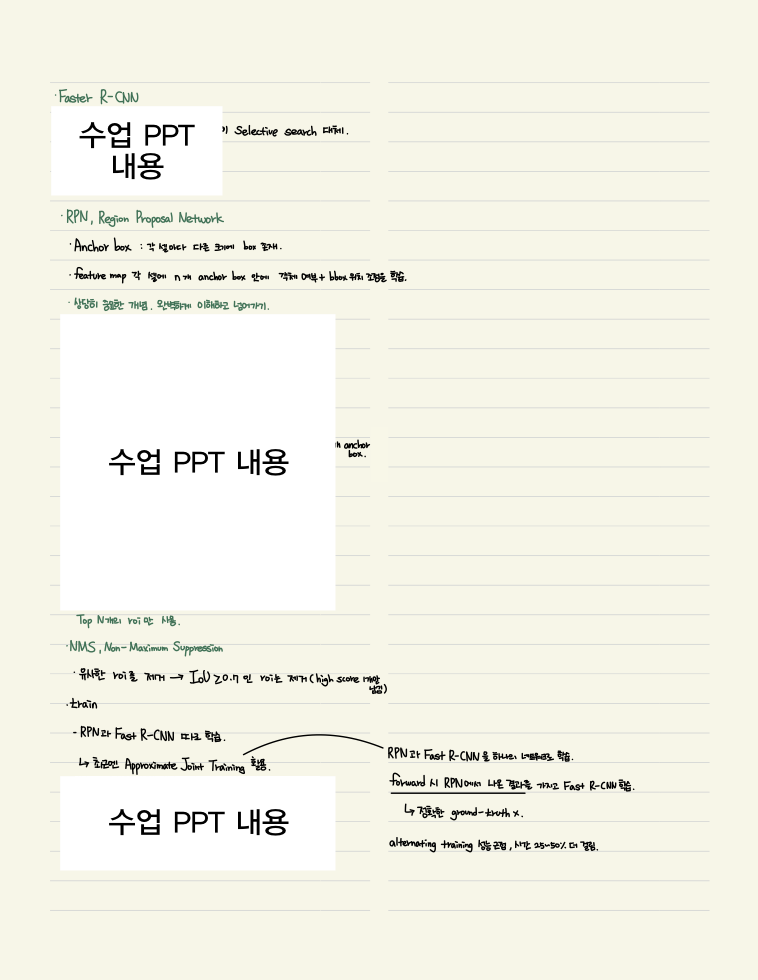 · Faster R-CNN
수업 PPT
내용
이 Selective search 대체.
· RPN, Region Proposal Network
· Anchor box : 각 셀마다 다른 크기에 box 존재.
· feature map 각 셀에 n개 anchor box 안에 객체 여부 + bbox 위치 조정을 학습.
· 상당히 중요한 개념. 완벽하게 이해하고 넘어가기.
수업 PPT 내용
개 anchor
box.
Top N개의 roi만 사용.
· NMS, Non-Maximum Suppression
· 유사한 roi를 제거 → IoU ≥0.7 인 roi는 제거 (high score 1개만
남김)
· train
- RPN과 Fast R-CNN 따로 학습.
↳ 최근엔 Approximate Joint Training 활용.
수업 PPT 내용
RPN과 Fast R-CNN을 하나의 네트워크로 학습.
forward 시 RPN에서 나온 결과를 가지고 Fast R-CNN 학습.
↳ 정확한 ground-truth x.
alternating training 성능 근접, 시간 25~50% 더 걸림.